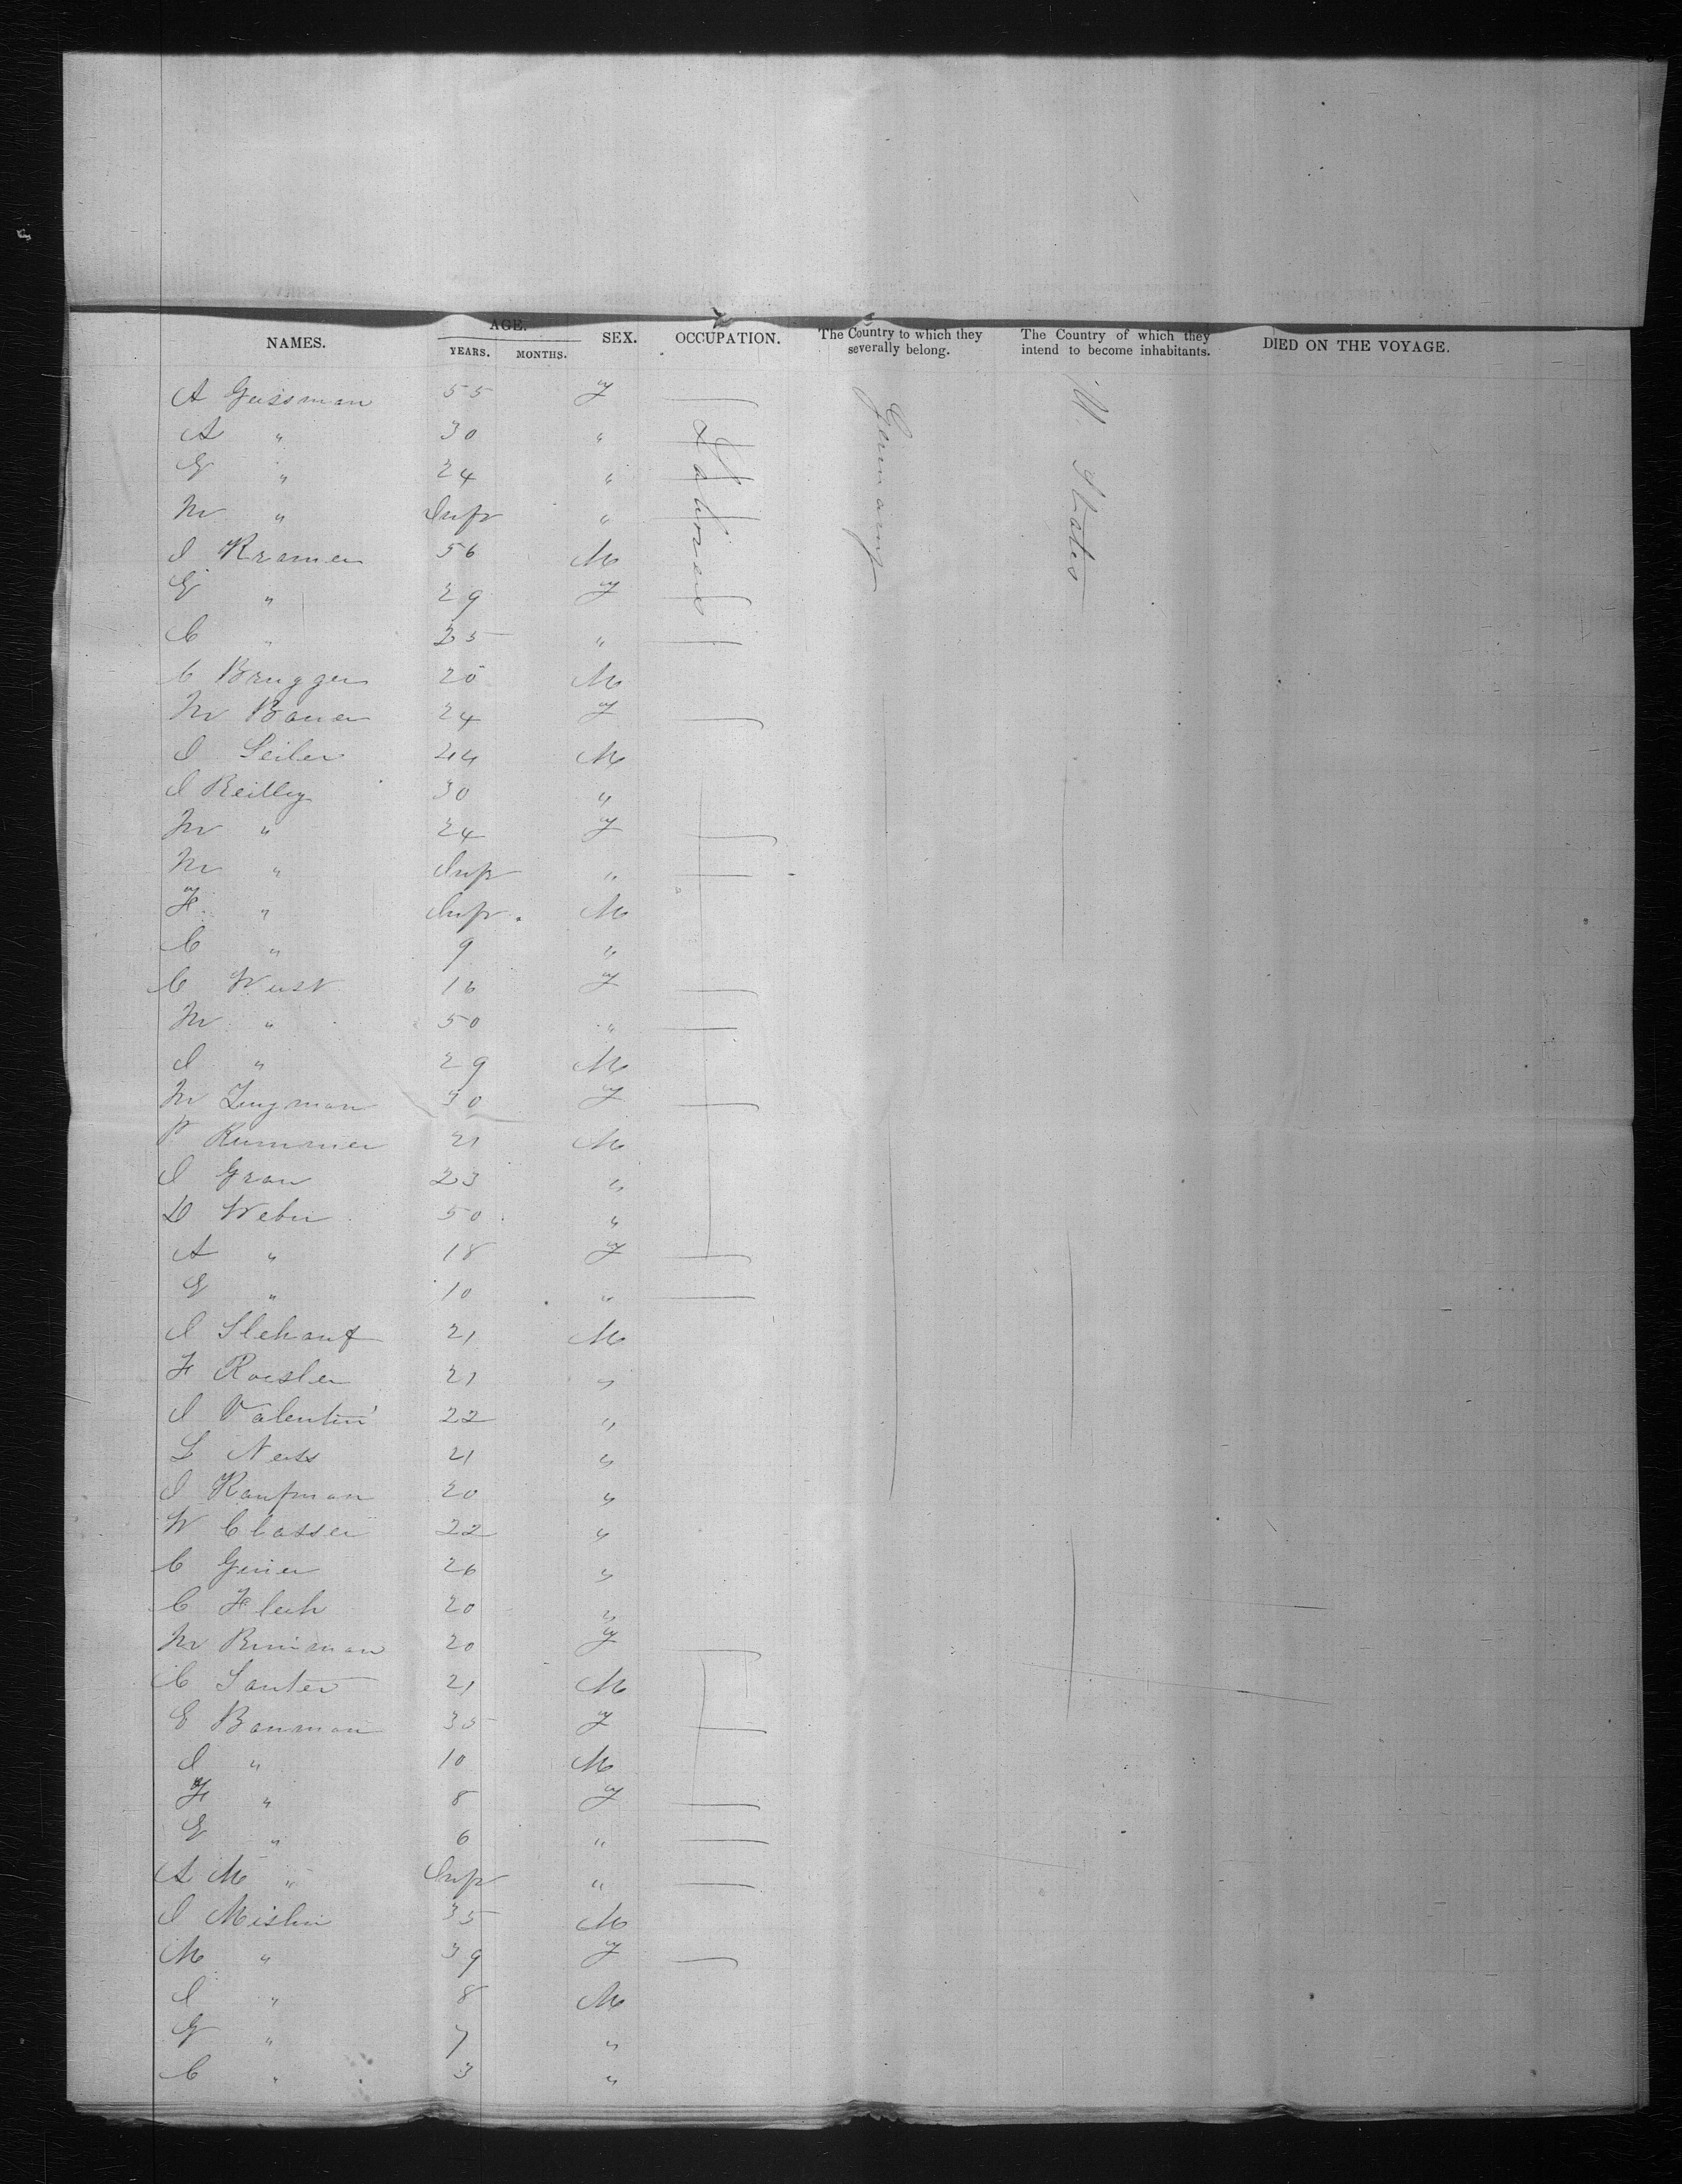 NAMES. AGE. YEARS. MONTHS. SEX. OCCUPATION. The Country to which they severally belong. The Country of which they intend to become inhabitants. DIED ON THE VOYAGE.
Laborers
Germany
U. States
A Geissman 55 F
A " 30 "
G " 24 "
M " Inft "
J Kramer 56 M
G " 29 F
C " 25 "
C Brugger 20 M
M Bauer 24 F
J Seiler 44 M
J Reilley 30 "
M " 24 F
M " Inft "
F " Inft. M
C " 9 "
C Wust 16 F
M " 50 "
J " 29 M
M Zugman 30 F
P Kummer 21 M
J Grau 23 "
D Weber 50 "
A " 18 F
G " 10 "
J 21 M
F Roesler 21 "
J Valentin 22 "
L Neiss 21 "
J Kaufman 20 "
W Classer 22 "
C 26 "
C Flech 20 "
M 20 F
C Sauter 21 M
E Bauman 35 F
J " 10 M
F " 8 F
G " 6 "
A M " Inft "
J Mislin 35 M
M " 39 F
J " 8 M
G " 7 "
C " 3 "